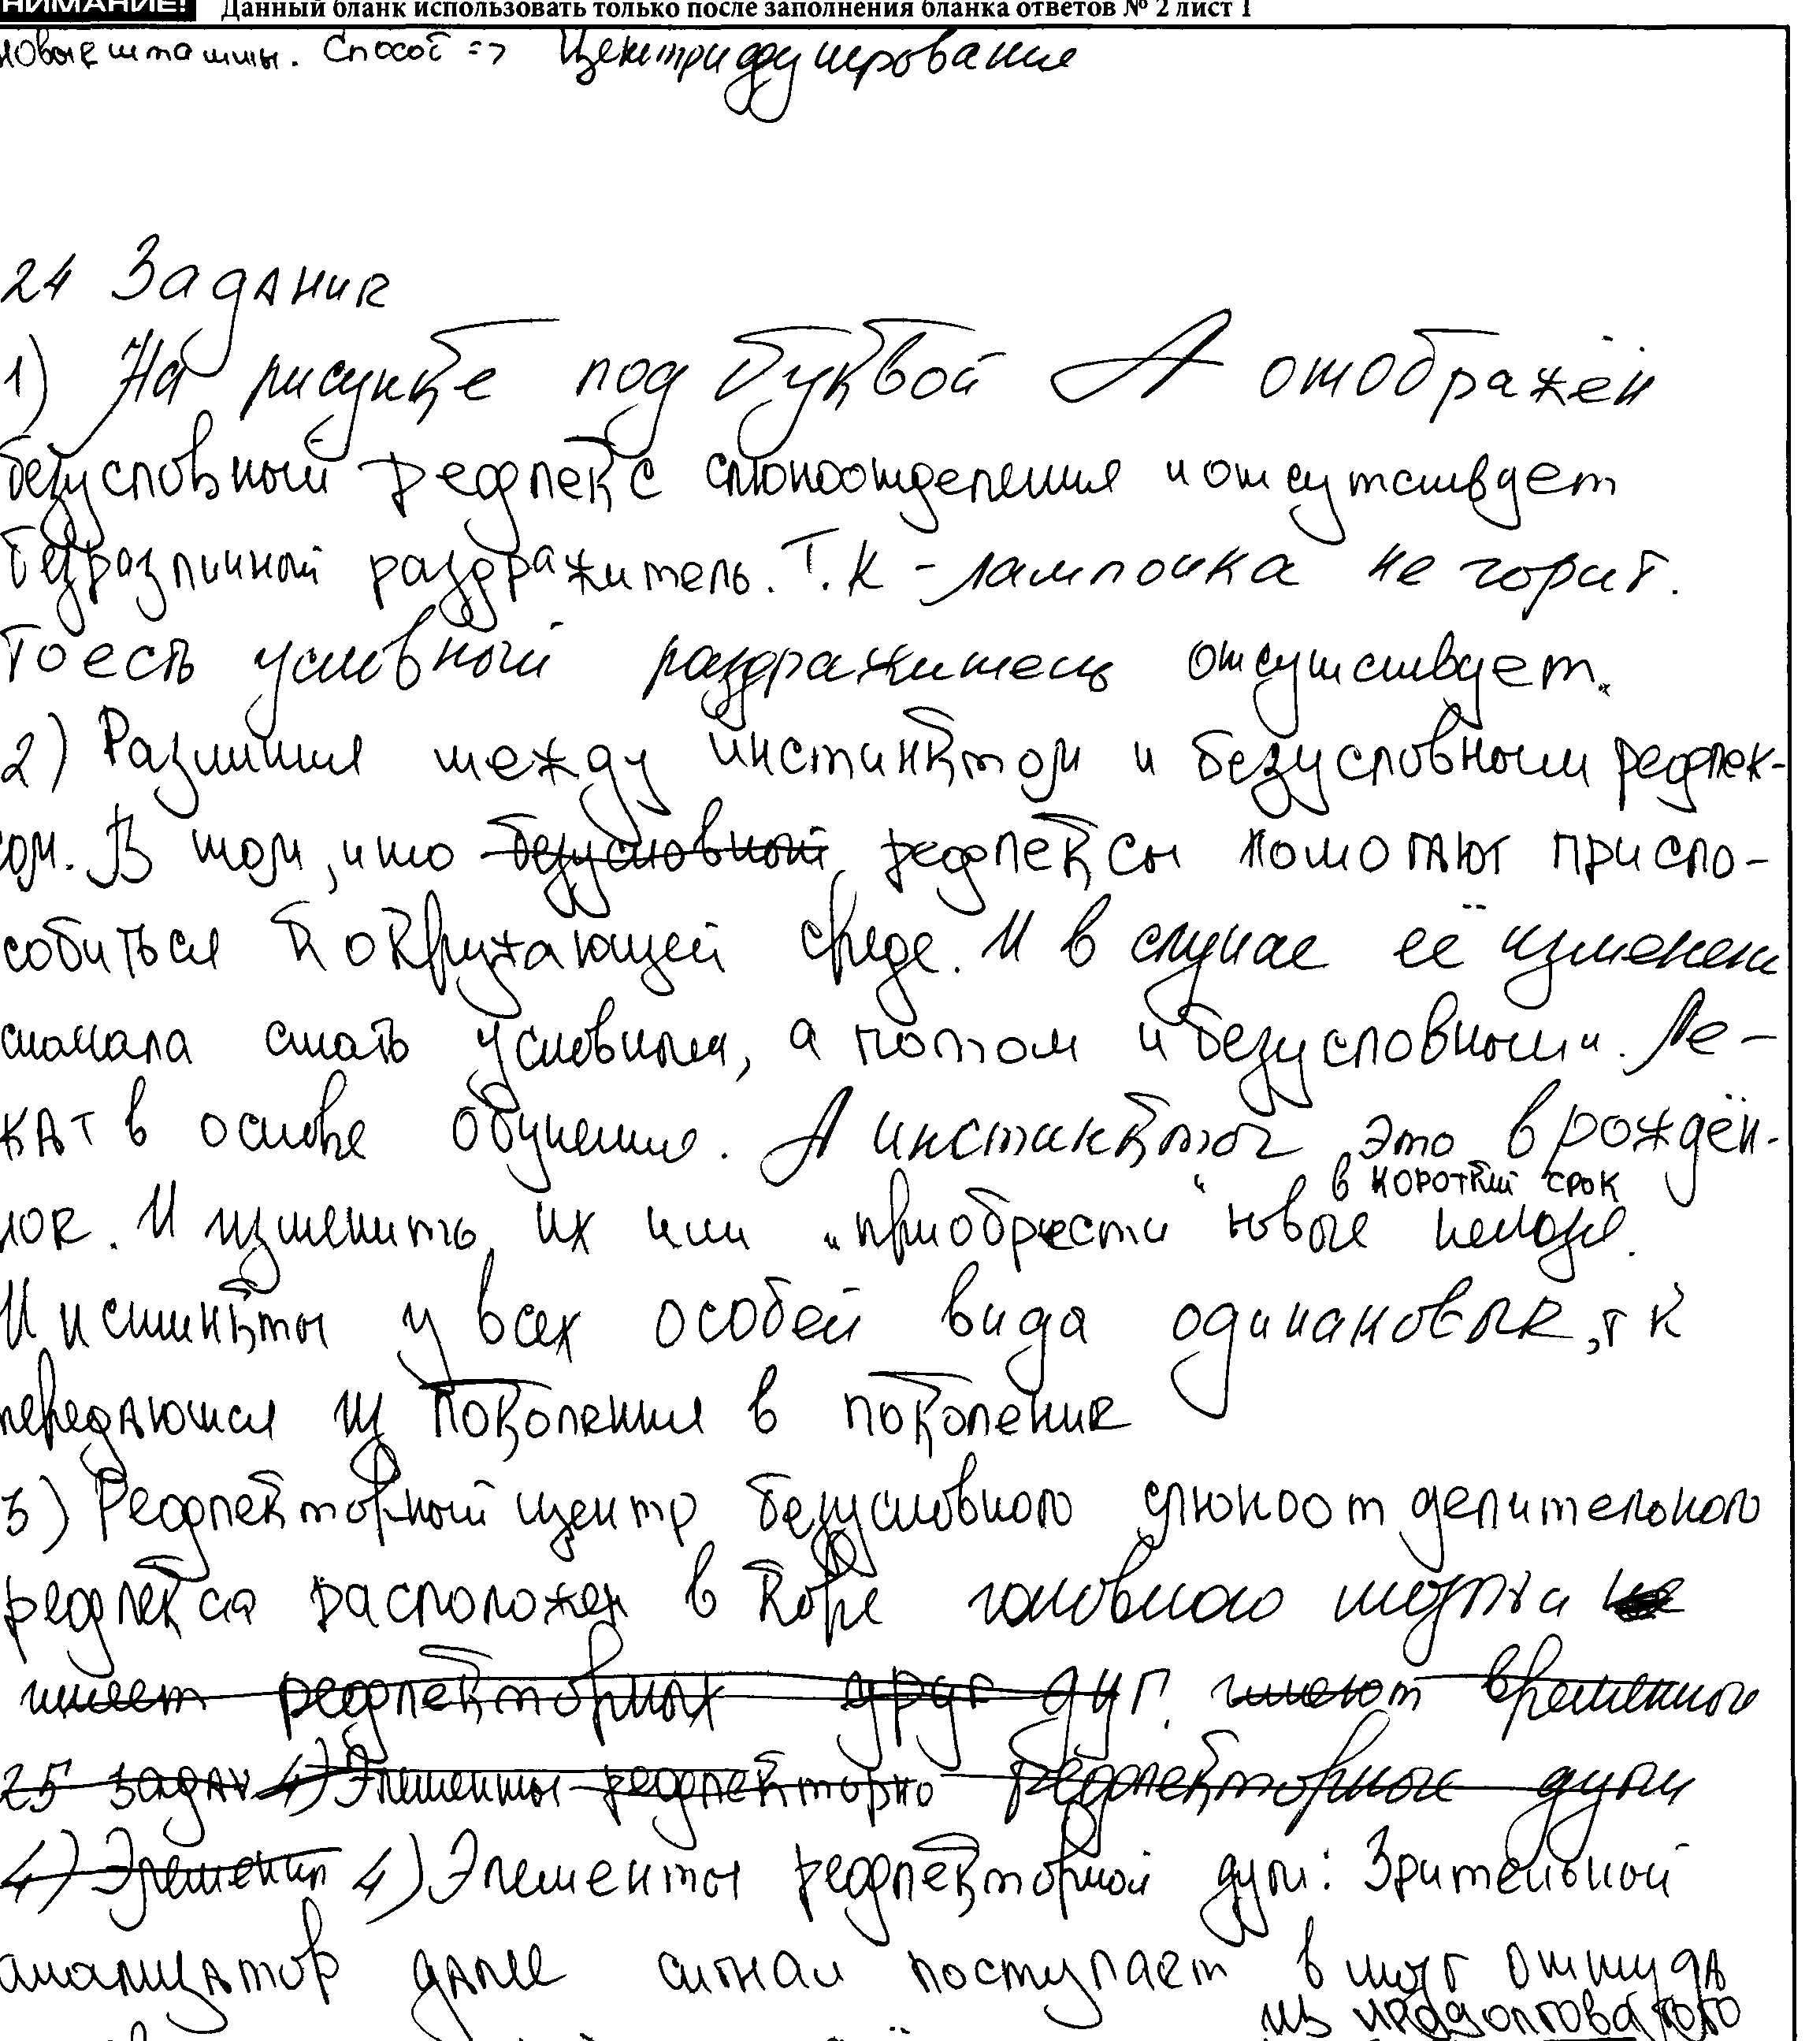 ВНИМАНИЕ! Данный бланк использовать только после заполнения бланка ответов № 2 лист 1
новые штаммы. Способ => Центрифугирование
24 Задание
1) На рисунке под буквой А отображён
безусловный рефлекс слюноотделения и отсутствует
безразличный раздражитель. Т.К - лампочка не горит.
То есть условный раздражитель отсутствует.
2) Различия между инстинктом и безусловным рефлек-
сом. В том, что безусловный рефлексы помогают приспо-
собиться к окружающей среде. И в случае её изменени
сначала стать условным, а потом и безусловными. Ле-
жат в основе обучения. А инстинкт это врождён-
ное. И изменить их или "приобрести" новые в короткий срок нельзя.
Инстинкты у всех особей вида одинаковые, т к
передаются из поколения в поколение
3) Рефлекторный центр безусловного слюноотделительного
рефлекса расположен в коре головного мозга и не
имеет рефлекторных друг дуг. имеют временные
25 задан 4) Элементы рефлекторно рефлекторные дуги
4) Элементы 4) Элементы рефлекторной дуги: Зрительной
анализатор далее сигнал поступает в мозг откуда
из продолговатого